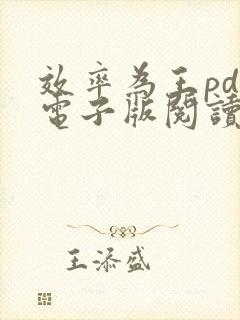 效率為王pd
電子版閱讀
王添盛